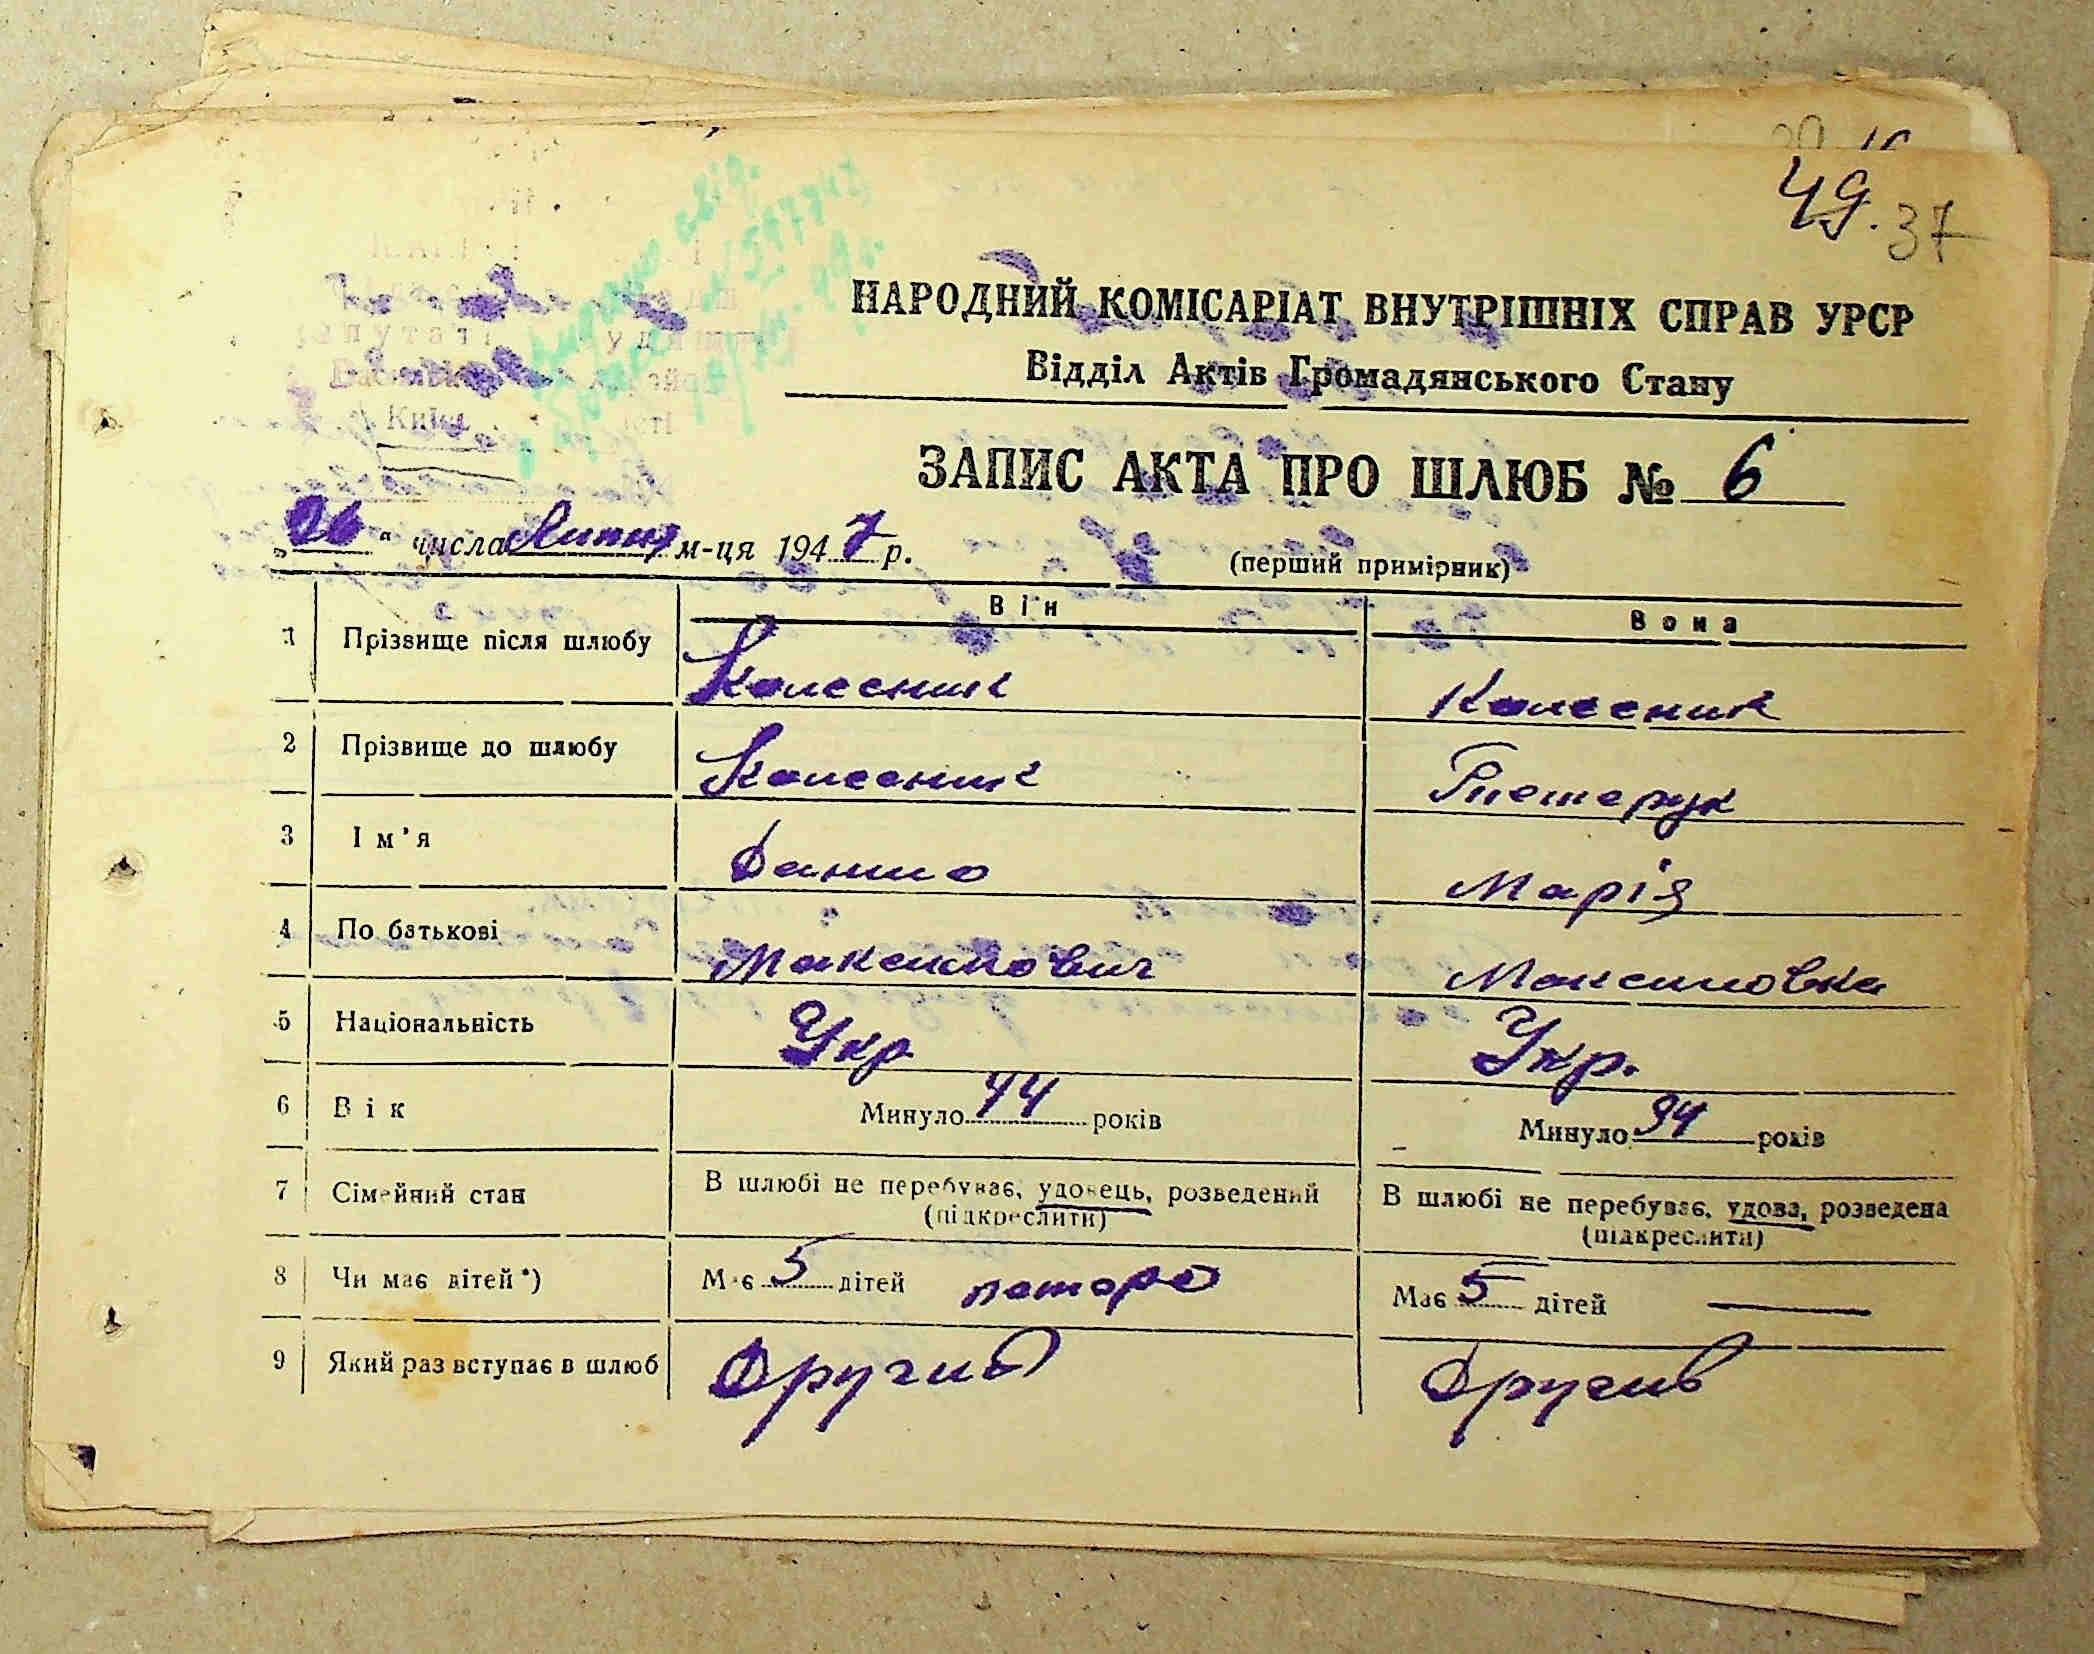 49. 37
НАРОДНИЙ КОМІСАРІАТ ВНУТРІШНІХ СПРАВ УРСР
Відділ Актів Громадянського Стану
ЗАПИС АКТА ПРО ШЛЮБ № 6
„26“ числа Липня м-ця 1947 р.
(перший примірник)
Він Вона
1 Прізвище після шлюбу Колесник Колесник
2 Прізвище до шлюбу Колесник
3 Ім'я Данило Марія
4 По батькові Максимович Максимовна
5 Національність Укр. Укр.
6 Вік Минуло 44 років Минуло 34 років
7 Сімейний стан В шлюбі не перебуває, удовець, розведений В шлюбі не перебуває, удова, розведена
(підкреслити) (підкреслити)
8 Чи має дітей*) Має 5 дітей пятеро Має 5 дітей —
9 Який раз вступає в шлюб Другий Другий